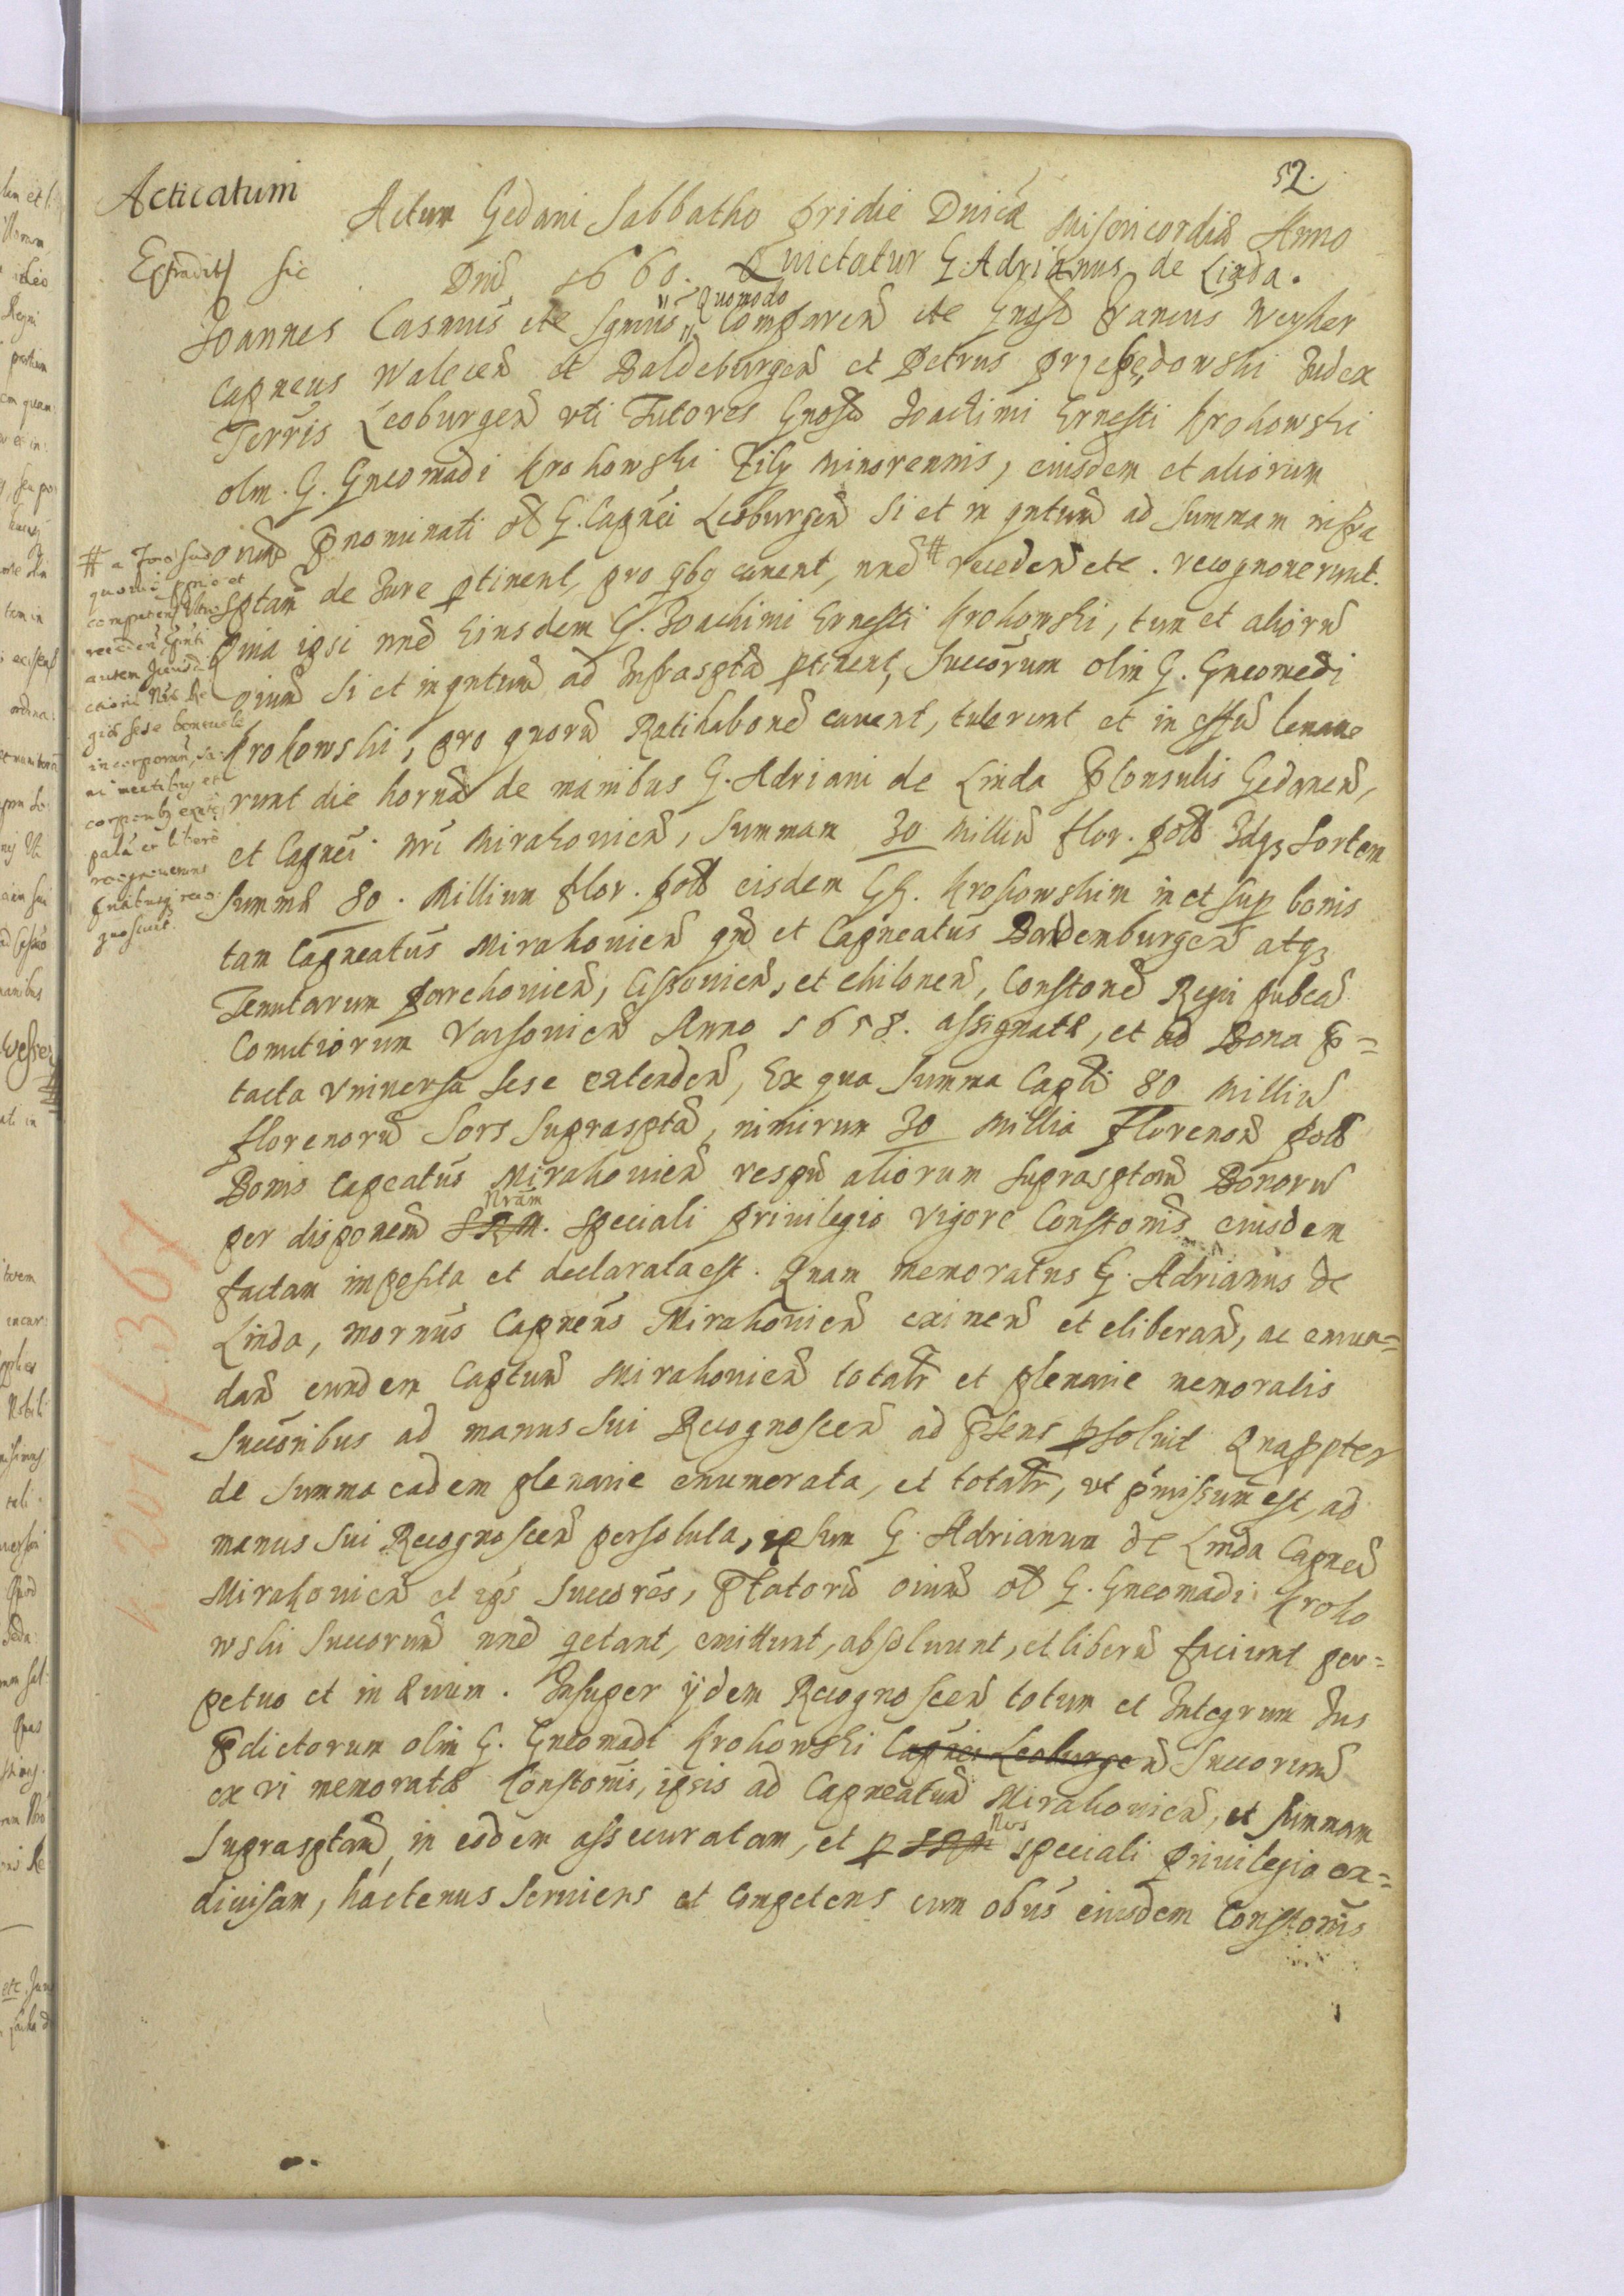 52.
Acticatum
Actum Gedani Sabbatho pridie Dnicæ Misericordiæ Anno
Extradits sic
Dni 1660. Quictatur G. Adrianus de Linda.
Joannes Casmus etc Sgmus Quomodo Comparen etc Gnosi Francus Weyher
Capneus Walecen et Baldeburgen et Petrus Przebędowski Judex
Terris Leoburgen uti Tutores Gnosi Joachimi Ernesti Krokowski
olm. G. Gneomadi Krokowski Filÿ minorennis, eiusdem et aliorum
onium pnominati ol G. Capnei Leoburgen si et in qntum ad summam infra
sptam de Jure ptinent, pro qbq cavent, nne # receden etc. recognoverunt.
Quia ipsi nne Eiusdem G. Joachimi Ernesti Krokowski, tum et aliorum
oium si et inqntum ad Infrasptam ptinent, Succorum olim G. Gneomedi
Krokowski, pro quorum Ratihabone cavent, tulerunt et in effu levave
runt die horna de manibus G. Adriani de Linda Pconsulis Gedanen,
et Capnei nri Mirahovien, Summam 30 Millium flor. poll Idq3 Sortem
Summæ 80. Millium flor. poll eisdem GG. Krokowskim in et sup bonis
tam Capneatus Mirahovien qm et Capneatus Baldemburgen atq3
Tenutarum Parchovien, Cissovien, et Chilonen, Constone Regni pubca
Comitiorum Varsovien Anno 1658. assignatæ, et ad Bona p=
tacta Universa sese extenden, Ex qua Summa Capli 80 Millium
florenorum Sors Suprasptа, nimirum 30 Millia Florenorum poll
Bonis Capeatus Mirahovien respu aliorum suprasptorum Bonorum
per disponem Nram speciali privilegio vigore Constonis eiusdem
factam imposita et declarata est. Quam memoratus G. Adrianus de
Linda, mornus Capneus Mirahovien eximen et eliberan, ac emun=
dan eundem Captum Mirahovien totalr et plenarie memoratis
Succoribus ad manus Sui Recognoscen ad Psens psolvit Quappter
de Summa eadem plenarie enumerata, et totalr, ut pmissum est, ad
manus Sui Recognoscen persoluta, ipsum G. Adrianum de Linda Capneum
Mirahovien et ips Succores, Ptatorum oium ol G. Gneomadi Kroko
wski Succorum nne qetant, emittunt, absolvunt, et liberum faciunt per=
petuo et in Ævum. Insuper ÿdem Recognoscen totum et Integrum Jus
Pdictorum olim G. Gneomadi Krokowski Capnei Leoburgen Succorum
ex vi memoratæ Constonis, ipsis ad Capneatum Mirahovien, et summam
Suprasptam, in eodem assecuratam, et p Nos speciali privilegio ex=
divisam, hactenus Serviens et Competens cum obus eiusdem Constonis
# a Foro suo
quovis pprio et
receden
autem Jurisdi
ctioni
gio sese
incorporan, sa
ni mentibus et
corporib9
palam et libere
recognoverunt
gnoscunt.
K 201 f. 361